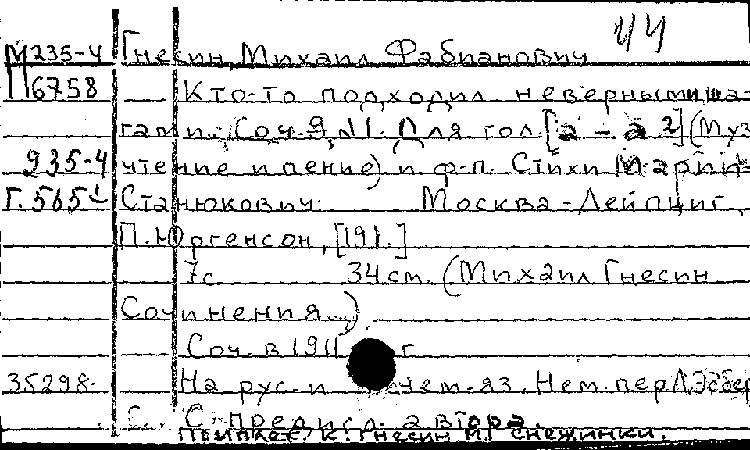 44
М235-4 Гнесин, Михаил Фабианович
П6758 Кто-то подходил неверными ша-
гами. Соч. 9, №1. Для гол. [a - a 2] (Муз.
935-4 чтение и пение) и ф-п. Стихи Марии
Г.565 Станюкович. Москва-Лейпциг,
П. Юргенсон, [191.]
7с. 34 см. (Михаил Гнесин
Сочинения.)
Соч. в 1911 г.
35298. На рус. и нем. яз. Нем. пер.
С предисл. автора.
Приплет. к: Гнесин М. Снежинки.